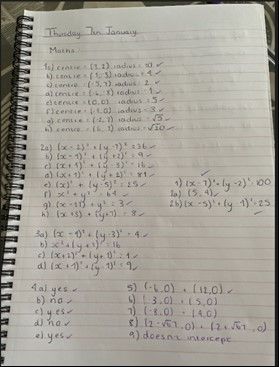 Thursday 7th January
Maths
1a) centre = (3, 2) radius = 10 ✓
b) centre = ( , 3) radius = 4 ✓
c) centre = (-3, 7) radius = 2 ✓
d) centre = ( , 8) radius = 1 ✓
e) centre = (0, 0) radius = 5 ✓
f) centre = ( , 0) radius = 3 ✓
g) centre = ( , 2) radius = √5 ✓
h) centre = ( , ) radius = √20 ✓
2a) (x - 2)² + (y - 7)² = 36 ✓
b) (x - 1)² + (y + 2)² = 9 ✓
c) (x + 1)² + (y - 3)² = 16 ✓
d) (x + 1)² + (y + 2)² = 81 ✓
e) (x)² + (y - 5)² = 25 ✓
f) x² + y² = 64 ✓
g) (x - )² + y² = 3 ✓
h) (x + 3) + (y + 7) = 8 ✓
1) (x - 7)² + (y - 2)² = 100
2a) (5, 4) ✓
2b) (x - 5)² + (y - )² = 25 ✓
3a) (x - 1)² + (y - 3)² = 4 ✓
b) x² + (y + )² = 16
c) (x + 2)² + (y + 1)² = 1 ✓
d) (x + 1)² + (y - )² = 9 ✓
4a) yes ✓
b) no ✓
c) yes ✓
d) no ✓
e) yes ✓
5) (-6, 0) + (12, 0) ✓
6) (-3, 0) + (5, 0)
7) (-8, 0) + (4, 0)
8) (2 - √ , 0) + (2 + √ , 0)
9) doesn't intercept